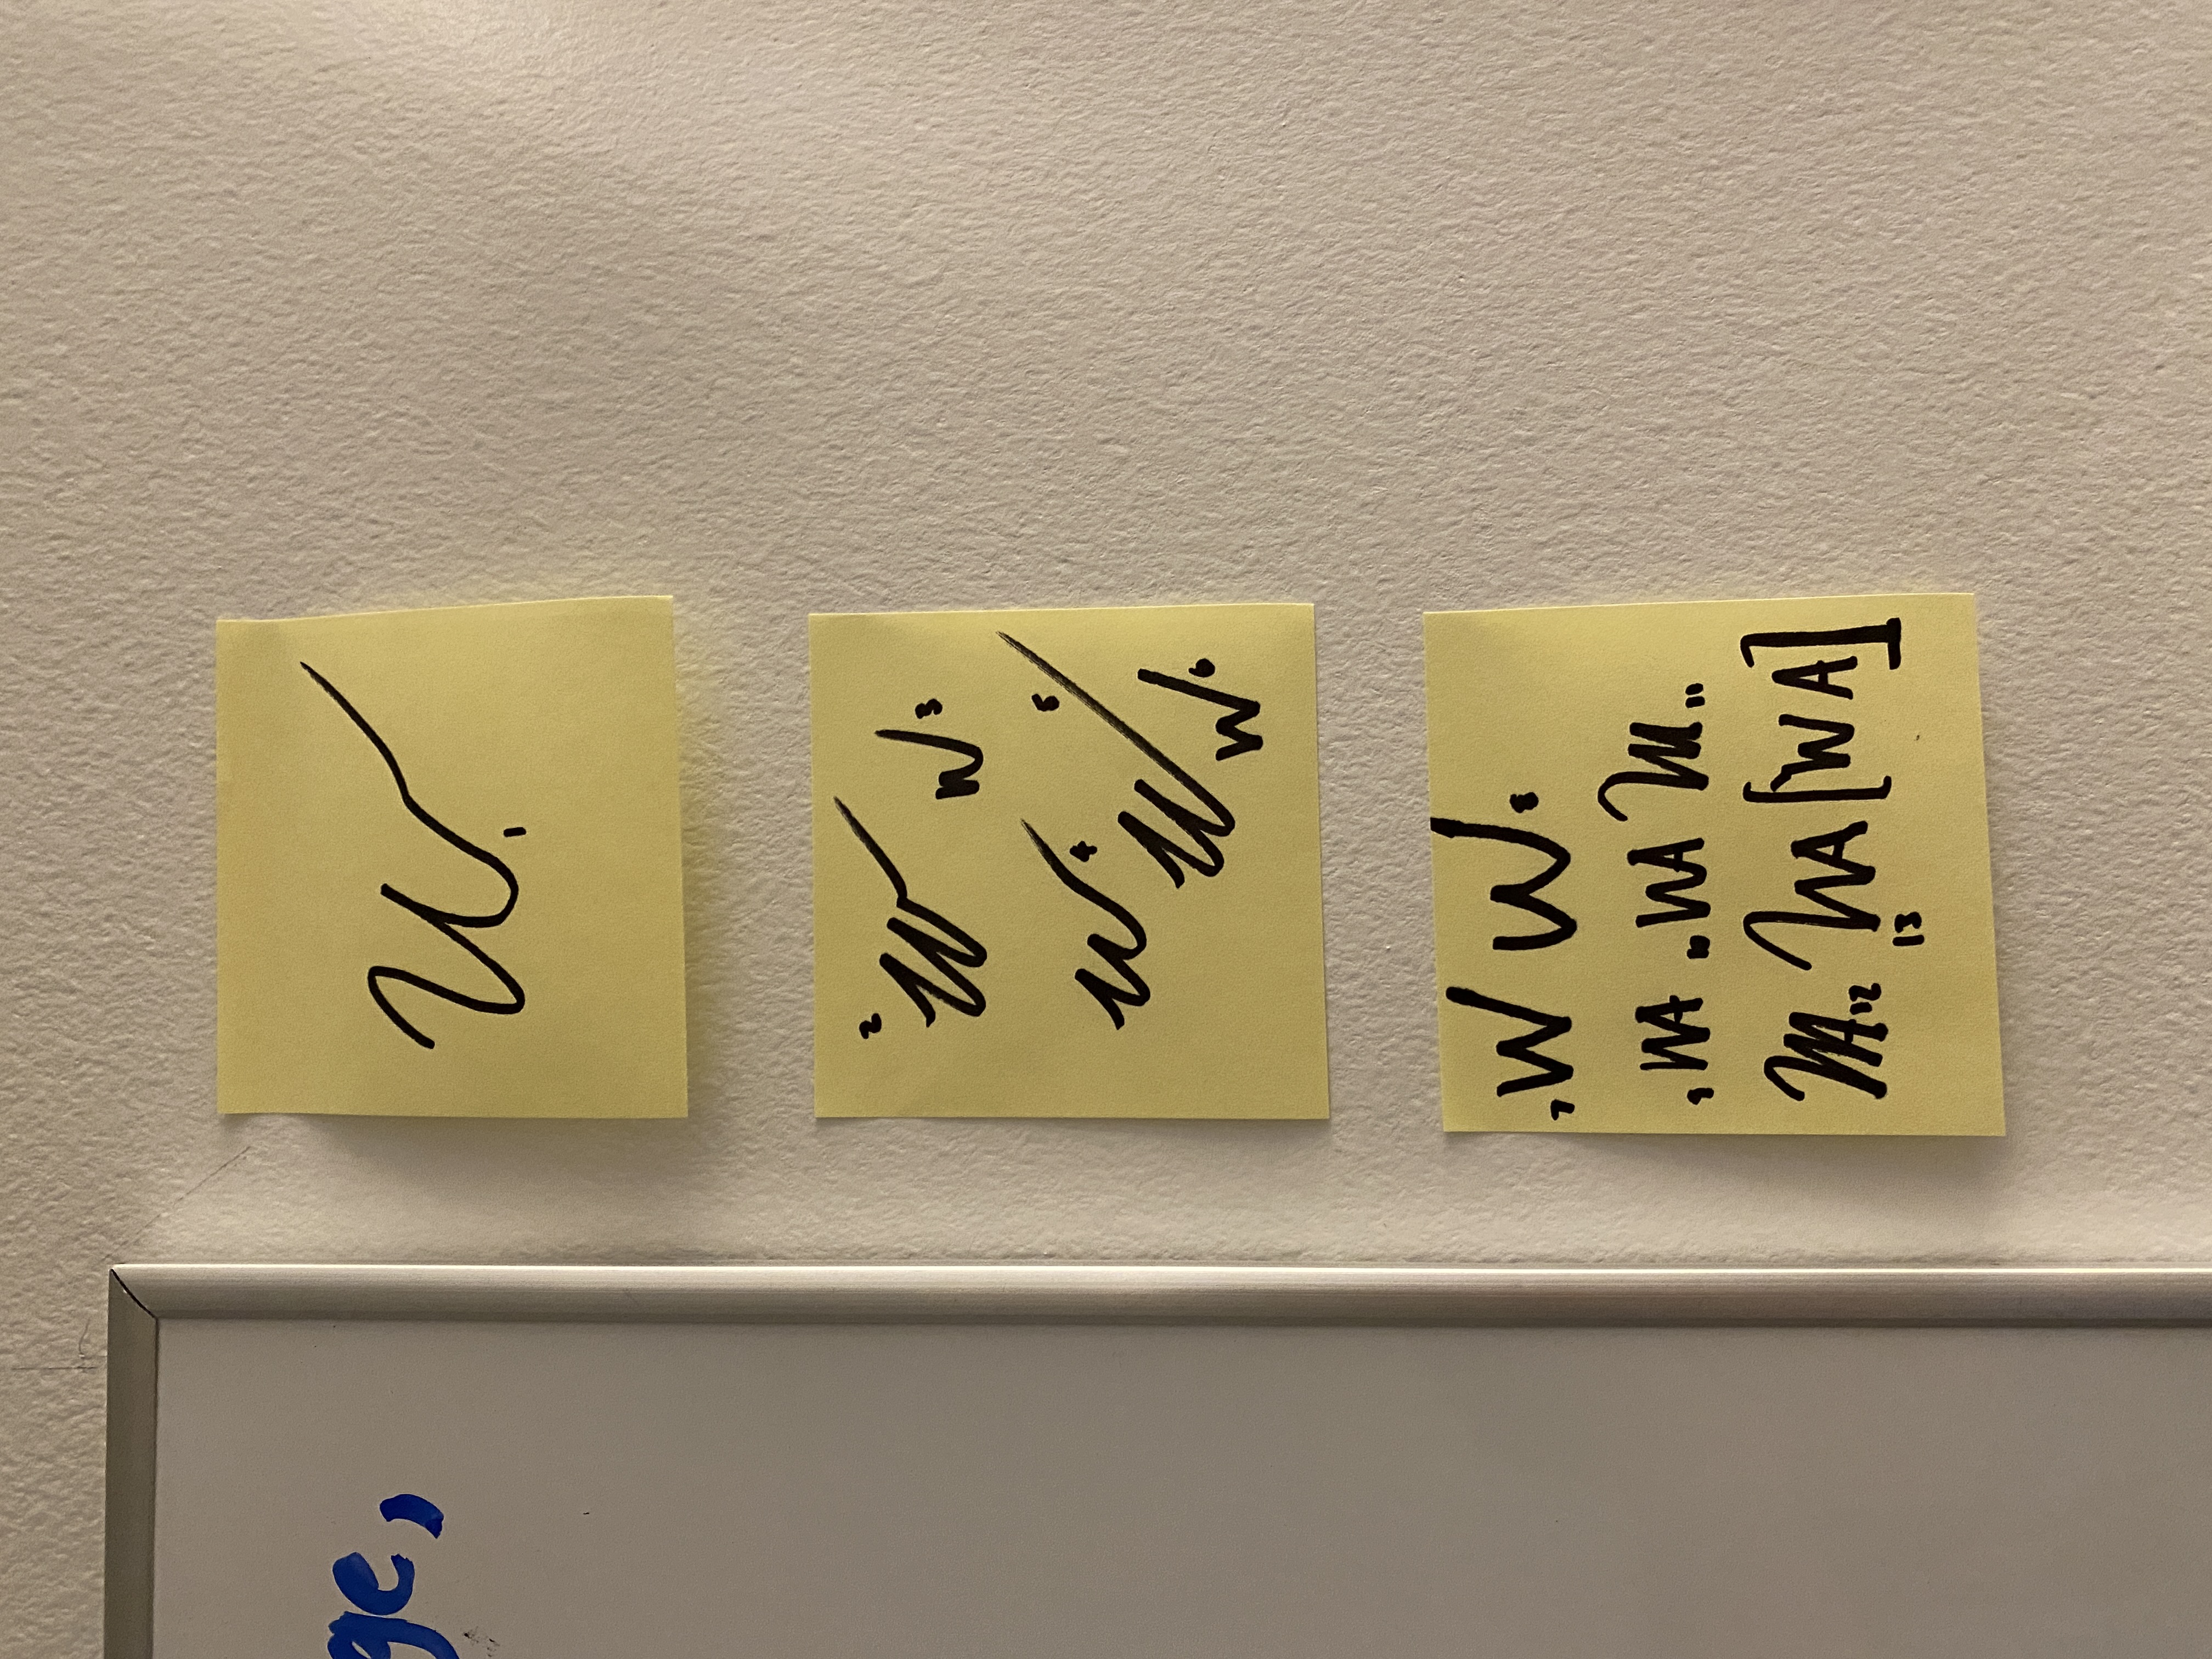 ge,
W 1
2 W W 3
W 4 W 5
W 6
7 W W 8
9 WA 10 WA WA 11
WA 12 WA [WA]
13